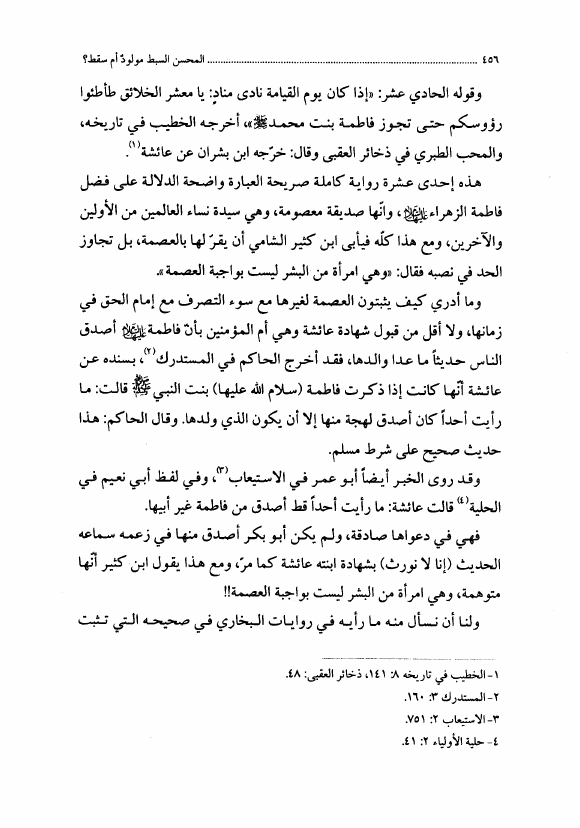 ٤٥٦ ........................................................................ المحسن السبط مولودٌ أم سقط؟
وقوله الحادي عشر: «إذا كان يوم القيامة نادى منادٍ: يا معشر الخلائق طأطئوا
رؤوسكم حتى تجوز فاطمة بنت محمد ﷺ»، أخرجه الخطيب في تاريخه،
والمحب الطبري في ذخائر العقبى وقال: خرّجه ابن بشران عن عائشة(١).
هذه إحدى عشرة رواية كاملة صريحة العبارة واضحة الدلالة على فضل
فاطمة الزهراء، وانّها صديقة معصومة، وهي سيدة نساء العالمين من الأولين
والآخرين، ومع هذا كلّه فيأبى ابن كثير الشامي أن يقرّ لها بالعصمة، بل تجاوز
الحد في نصبه فقال: «وهي امرأة من البشر ليست بواجبة العصمة».
وما أدري كيف يثبتون العصمة لغيرها مع سوء التصرف مع إمام الحق في
زمانها، ولا أقل من قبول شهادة عائشة وهي أم المؤمنين بأنّ فاطمة أصدق
الناس حديثاً ما عدا والدها، فقد أخرج الحاكم في المستدرك(٢)، بسنده عن
عائشة أنّها كانت إذا ذكرت فاطمة (سلام الله عليها) بنت النبي ﷺ قالت: ما
رأيت أحداً كان أصدق لهجة منها إلا أن يكون الذي ولدها. وقال الحاكم: هذا
حديث صحيح على شرط مسلم.
وقد روى الخبر أيضاً أبو عمر في الاستيعاب(٣)، وفي لفظ أبي نعيم في
الحلية(٤) قالت عائشة: ما رأيت أحداً قط أصدق من فاطمة غير أبيها.
فهي في دعواها صادقة، ولم يكن أبو بكر أصدق منها في زعمه سماعه
الحديث (إنا لا نورث) بشهادة ابنته عائشة كما مرّ، ومع هذا يقول ابن كثير أنّها
متوهمة، وهي امرأة من البشر ليست بواجبة العصمة!!
ولنا أن نسأل منه ما رأيه في روايات البخاري في صحيحه التي تثبت
١- الخطيب في تاريخه ٨: ١٤١، ذخائر العقبى: ٤٨.
٢- المستدرك ٣: ١٦٠.
٣- الاستيعاب ٢: ٧٥١.
٤- حلية الأولياء ٢: ٤١.